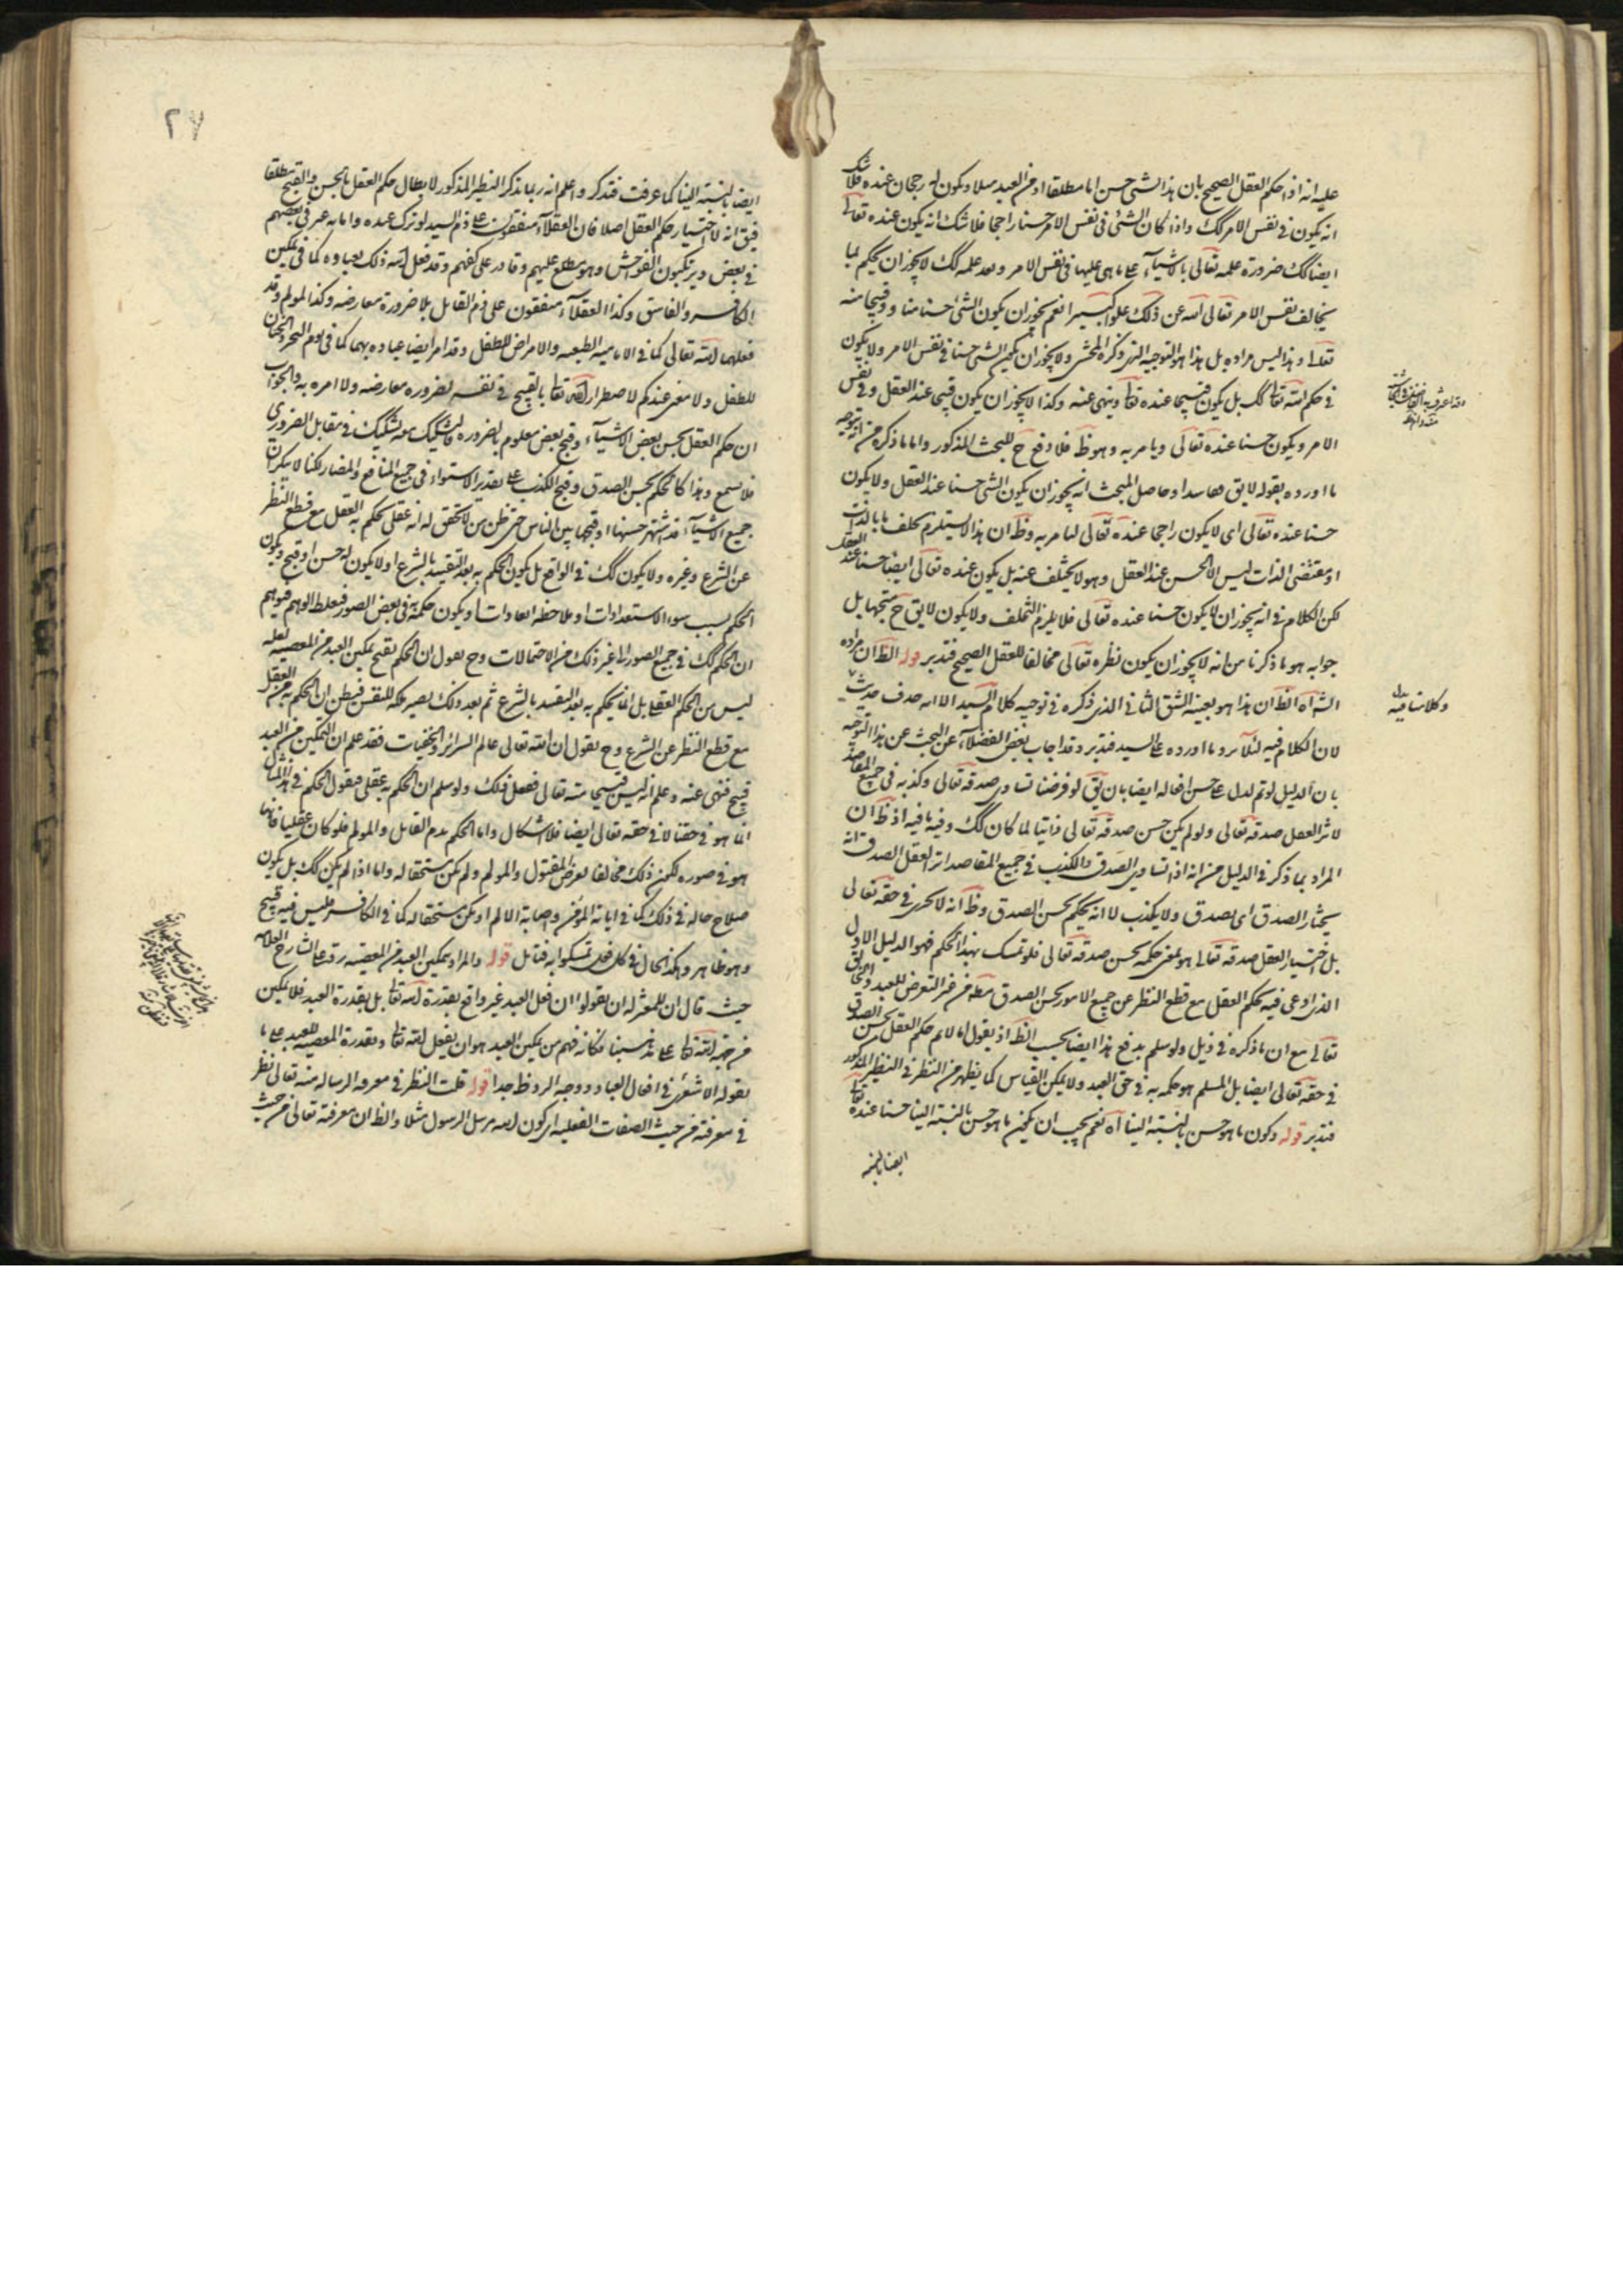 عليه انه اذا حكم العقل الصحيح بان هذا الشئ حسن اما مطلقا او من العبد مثلا ويكون له رجحان عنده فلا شك
انه يكون في نفس الامر كك واذا كان الشئ في نفس الامر حسنا راجحا فلا شك انه يكون عنده تعالى
ايضا كك ضرورة علمه تعالى بالاشياء على ما هي عليها في نفس الامر وبعد علمه كك لا يجوز ان يحكم بما
يخالف نفس الامر تعالى الله عن ذلك علوا كبيرا نعم يجوز ان يكون الشئ حسنا منا وقبيحا منه
تعالى وهذا ليس مراده بل هذا هو التوجيه الذي ذكره المحشى ولا يجوز ان يكون الشئ حسنا في نفس الامر ولا يكون
في حكم الله تعالى كك بل يكون قبيحا عنده تعالى وينهى عنه وكذا لا يجوز ان يكون قبيحا عند العقل وفي نفس
الامر ويكون حسنا عنده تعالى ويامر به وهو ظ فلا دفع ح للبحث المذكور واما ما ذكره من انه توجيه
ما اورده بقوله لا يق وحاصل البحث انه يجوز ان يكون الشئ حسنا عند العقل ولا يكون
حسنا عنده تعالى اى لا يكون راجحا عنده تعالى ليامر به وظ ان هذا لا يستلزم تخلف ما بالذات
او مقتضى الذات ليس الا الحسن عند العقل وهو لا يختلف عنه بل يكون عنده تعالى ايضا حسنا عند العقل
لكن الكلام في انه يجوز ان لا يكون حسنا عنده تعالى فلا يلزم التخلف ولا يكون لا يق ح متجها بل
جوابه هو ما ذكرنا من انه لا يجوز ان يكون نظره تعالى مخالفا للعقل الصحيح فتدبر قوله الظ ان مراده
الشا اه الظ ان هذا هو بعينه الشق الثاني الذي ذكره في توجيه كلام السيد الا انه حذف حديث
لان الكلام فيه لئلا يرد ما اورده على السيد فتدبر وقد اجاب بعض الفضلاء عن البحث عن هذا التوجيه
بان الدليل لو تم لدل على حسن افعاله ايضا بان يق لو فرضنا تساوى صدقه تعالى وكذبه في جميع المقاصد
لاثر العقل صدقه تعالى ولو لم يكن حسن صدقه تعالى ذاتيا لما كان كك وفيه ما فيه اذ ظ ان
المراد بما ذكر في الدليل من انه اذا تساوى الصدق والكذب في جميع المقاصد اثر العقل الصدق انه
يختار الصدق اى يصدق ولا يكذب لا انه يحكم بحسن الصدق وظ انه لا يجرى في حقه تعالى
بل اختيار العقل صدقه تعالى هو بمعنى حكمه بحسن صدقه تعالى فلو تمسك بهذا الحكم فهو الدليل الاول
الذي ادعى فيه حكم العقل مع قطع النظر عن جميع الامور بحسن الصدق مط من غير التعرض للعبد والخالق
تعالى مع ان ما ذكره في ذيل ولو سلم يدفع هذا ايضا بحسب الظ اذ يقول انا لا نم حكم العقل بحسن الصدق
في حقه تعالى ايضا بل المسلم هو حكمه به في حق العبد ولا يمكن القياس كما يظهر من النظر في النظير المذكور
فتدبر قوله وكون ما هو حسن بالنسبة الينا اه نعم يجب ان يكون ما هو حسن بالنسبة الينا حسنا عنده تعالى
ايضا بالنسبة
وكلاهما فيه بدل
٢٧
ايضا بالنسبة الينا كما عرفت فتذكر واعلم انه ربما يذكر النظير المذكور لابطال حكم العقل بالحسن والقبح مطلقا
فيق انه لا اختيار حكم العقل اصلا فان العقلاء متفقون على ذم السيد لو ترك عبده واماءه في بعضهم
في بعض ويرتكبون الفواحش وهو مطلع عليهم وقادر على كفهم وقد فعل الله ذلك بعباده كما في تمكين
الكافر والفاسق وكذا العقلاء متفقون على ذم القاتل بلا ضرورة معارضه وكذا المولم وقد
فعلهما الله تعالى كما في الاماتة الطبيعيه والامراض للطفل وقد امر ايضا عباده بهما كما في يوم النحر والختان
للطفل ولا مفر عندكم لاضطرار الله تعالى بالقبيح في نفسه لضروره معارضه ولا امره به والجواب
ان حكم العقل بحسن بعض الاشياء وقبح بعض معلوم بالضروره فالتشكيك معه تشكيك في مقابل الضرورى
فلا يسمع وهذا كالحكم بحسن الصدق وقبح الكذب على تقدير الاستواء في جميع المنافع والمضار لكنا لا ننكر ان
جميع الاشياء قد اشتهر حسنها او قبحها بين الناس حتى ظن من لا تحقق له انه عقلى يحكم به العقل مع قطع النظر
عن الشرع وغيره ولا يكون كك في الواقع بل يكون الحكم به بعد التقييد بالشرع او لا يكون له حسن او قبح ويكون
الحكم بسبب سوء الاستعدادات او ملاحظه العادات او يكون حكمه في بعض الصور فيغلط الوهم فيوهم
ان الحكم كك في جميع الصور الى غير ذلك من الاحتمالات وح نقول ان الحكم بقبح تمكين العبد من المعصيه لعله
ليس من الحكم العقلى بل انما يحكم به بعد التقييد بالشرع ثم بعد ذلك يصير ملكه للنفس فيظن ان الحكم به من العقل
مع قطع النظر عن الشرع وح نقول ان الله تعالى عالم السرائر والخفيات فقد علم ان التمكين من العبد
قبيح فنهى عنه وعلم انه ليس قبيحا منه تعالى ففعل ذلك ولو سلم ان الحكم به عقلى فنقول الحكم في هذا المثال
انما هو في حقنا لا في حقه تعالى ايضا فلا اشكال واما الحكم بذم القاتل والمولم فلو كان عقليا فانما
هو في صوره يكون ذلك مخالفا لغرض المقتول والمولم ولم يكن مستحقا له واما اذا لم يكن كك بل يكون
صلاح حاله في ذلك كما في اماتة المؤمن واصابة الالم او يكون مستحقا له كما في الكافر فليس فيه قبح
وهو ظاهر وهكذا الحال في كل فعل تمسكوا به فتامل قوله والمراد بتمكين العبد من المعصيه رد على الشارح العلامه
حيث قال ان للمعتزله ان يقولوا ان فعل العبد غير واقع بقدرة الله تعالى بل بقدرة العبد فلا تمكين
من جهة الله تعالى على مذهبنا فكانه فهم من تمكين العبد هو ان يفعل الله تعالى وبقدرة المعصيه للعبد على ما
يقوله الاشعرى في افعال العباد ووجه الرد ظ جدا قوله قلت النظر في معرفه الرساله منه تعالى نظر
في معرفته من حيث الصفات الفعليه اى كون الله مرسل الرسول مثلا والظ ان معرفته تعالى من حيث